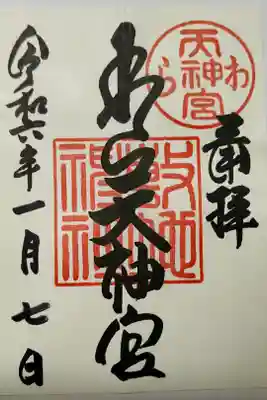 奉拝
わら
天神宮
わら天神宮
敷地
神社
令和六年一月七日